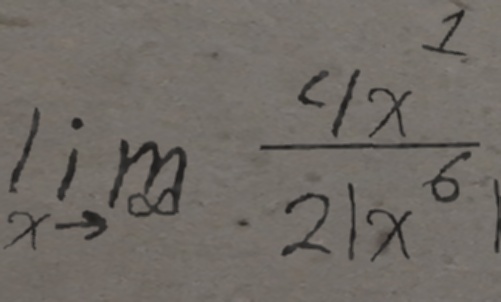 lim x→∞ 4x^1 / 2|x^6|